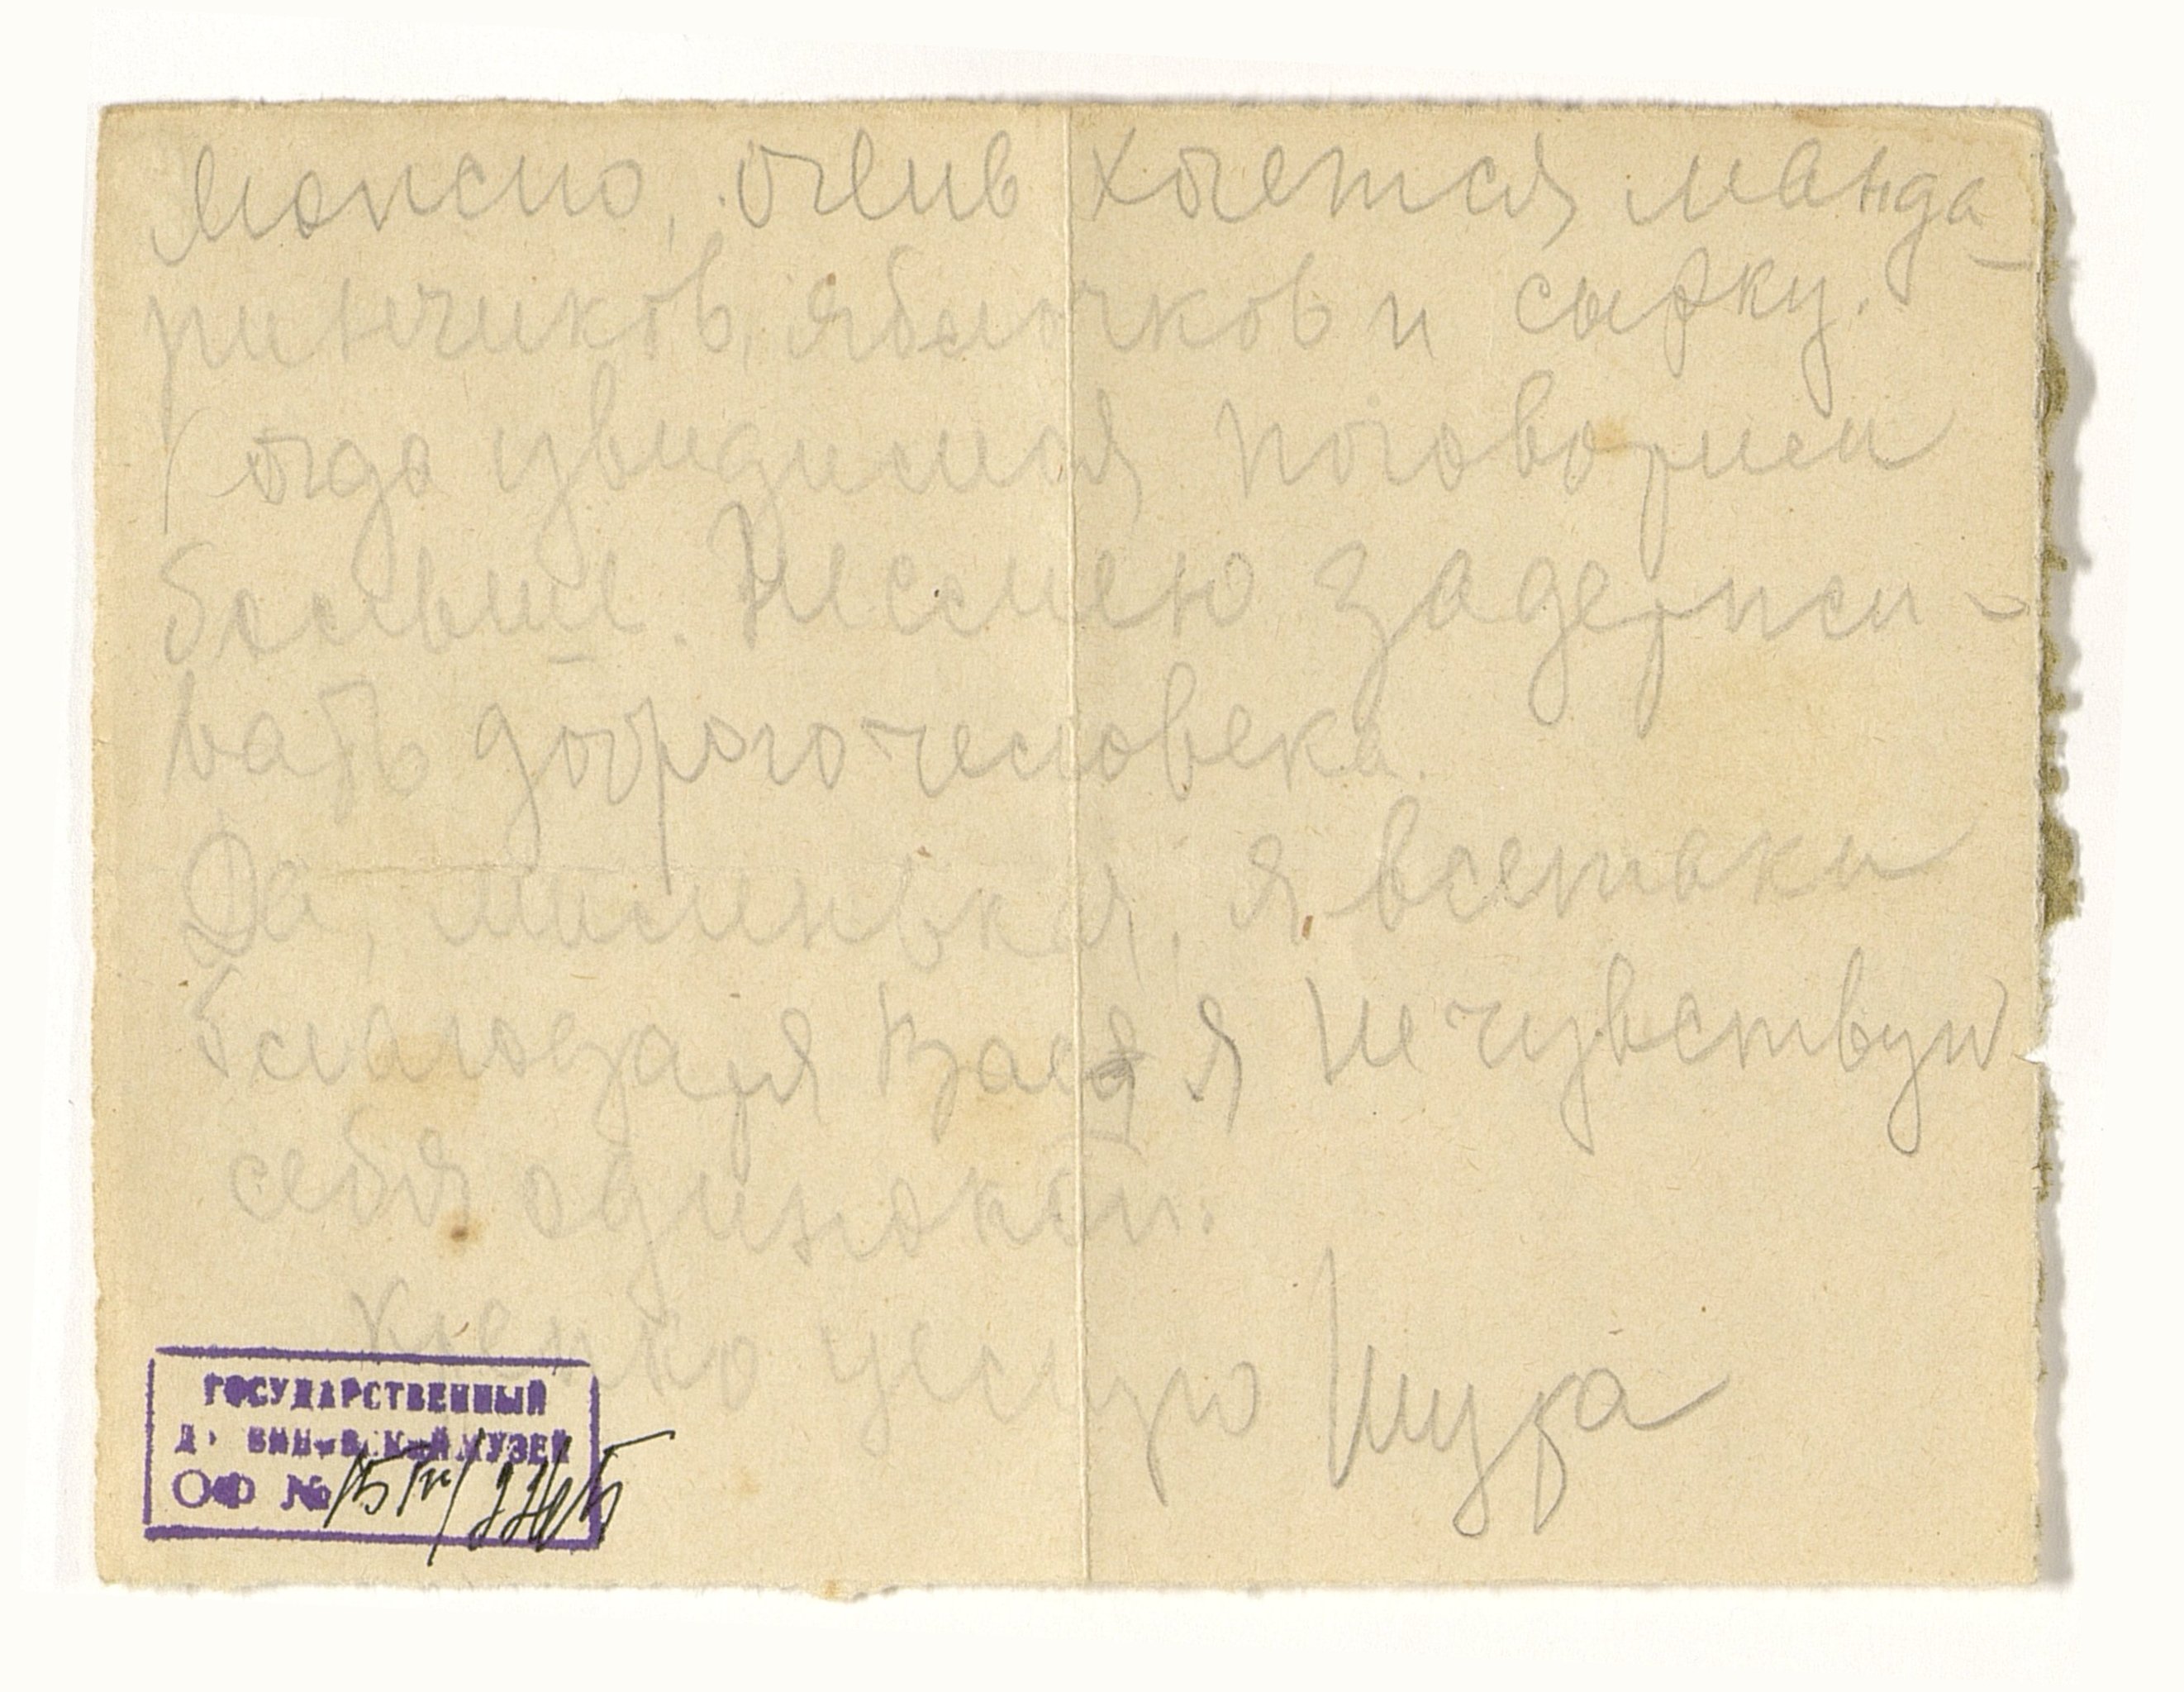 можно, очень хочется манда-
ринчиков, яблочков и сырку.
Когда увидимся поговорим
больше. Не смею задержи-
вать доброго человека.
Да, миленькая, я всетаки
благодаря Вася я не чувствую
себя одинокой.
Крепко целую Шура
ГОСУДАРСТВЕННЫЙ
МУЗЕЙ
ОФ №